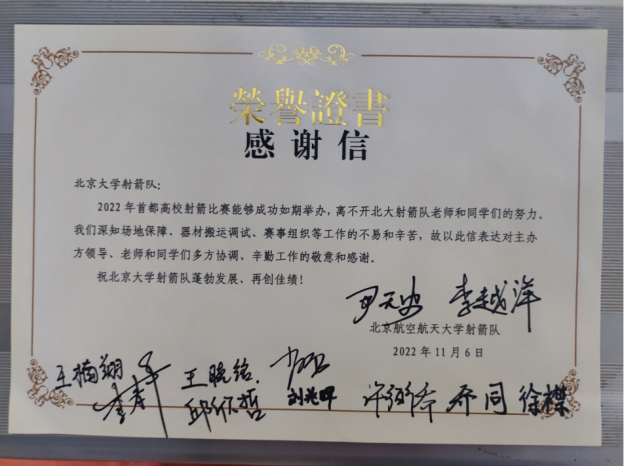 榮譽證書
感谢信
北京大学射箭队:
2022年首都高校射箭比赛能够成功如期举办,离不开北大射箭队老师和同学们的努力。
我们深知场地保障、器材搬运调试、赛事组织等工作的不易和辛苦,故以此信表达对主办
方领导、老师和同学们多方协调、辛勤工作的敬意和感谢。
祝北京大学射箭队蓬勃发展、再创佳绩!
李越洋
北京航空航天大学射箭队
2022年11月6日
王楠翔
王晓铭
刘兆晖
乔同
徐襟